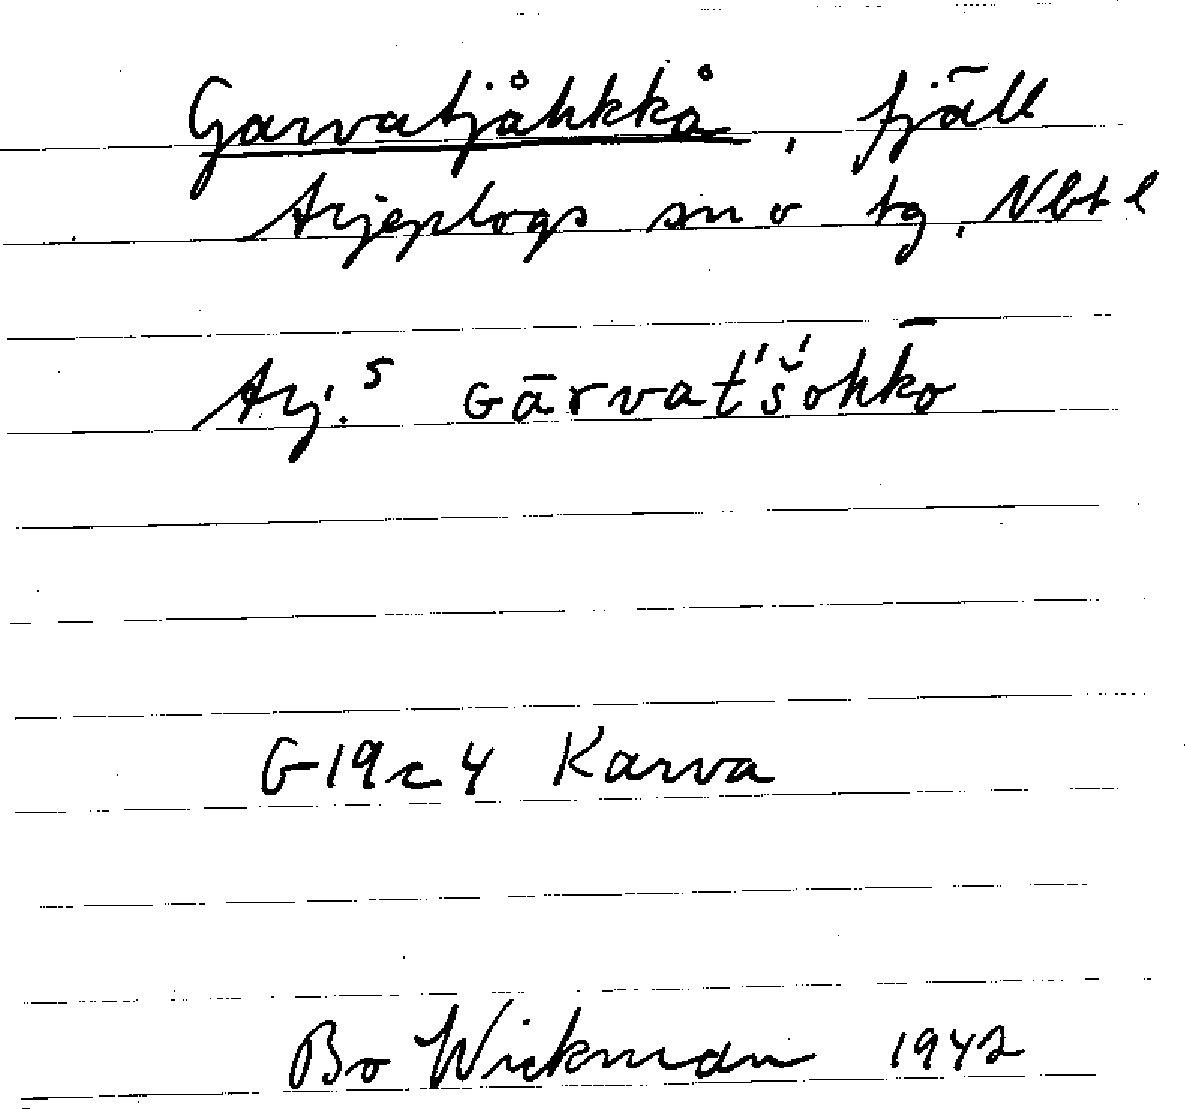 Garvatjåhkkå, fjäll
Arjeplogs sn o tg, Nbt l
Arj.ˢ Gārvat́'š́ohkō
G19c4 Karva
Bo Wickman 1942